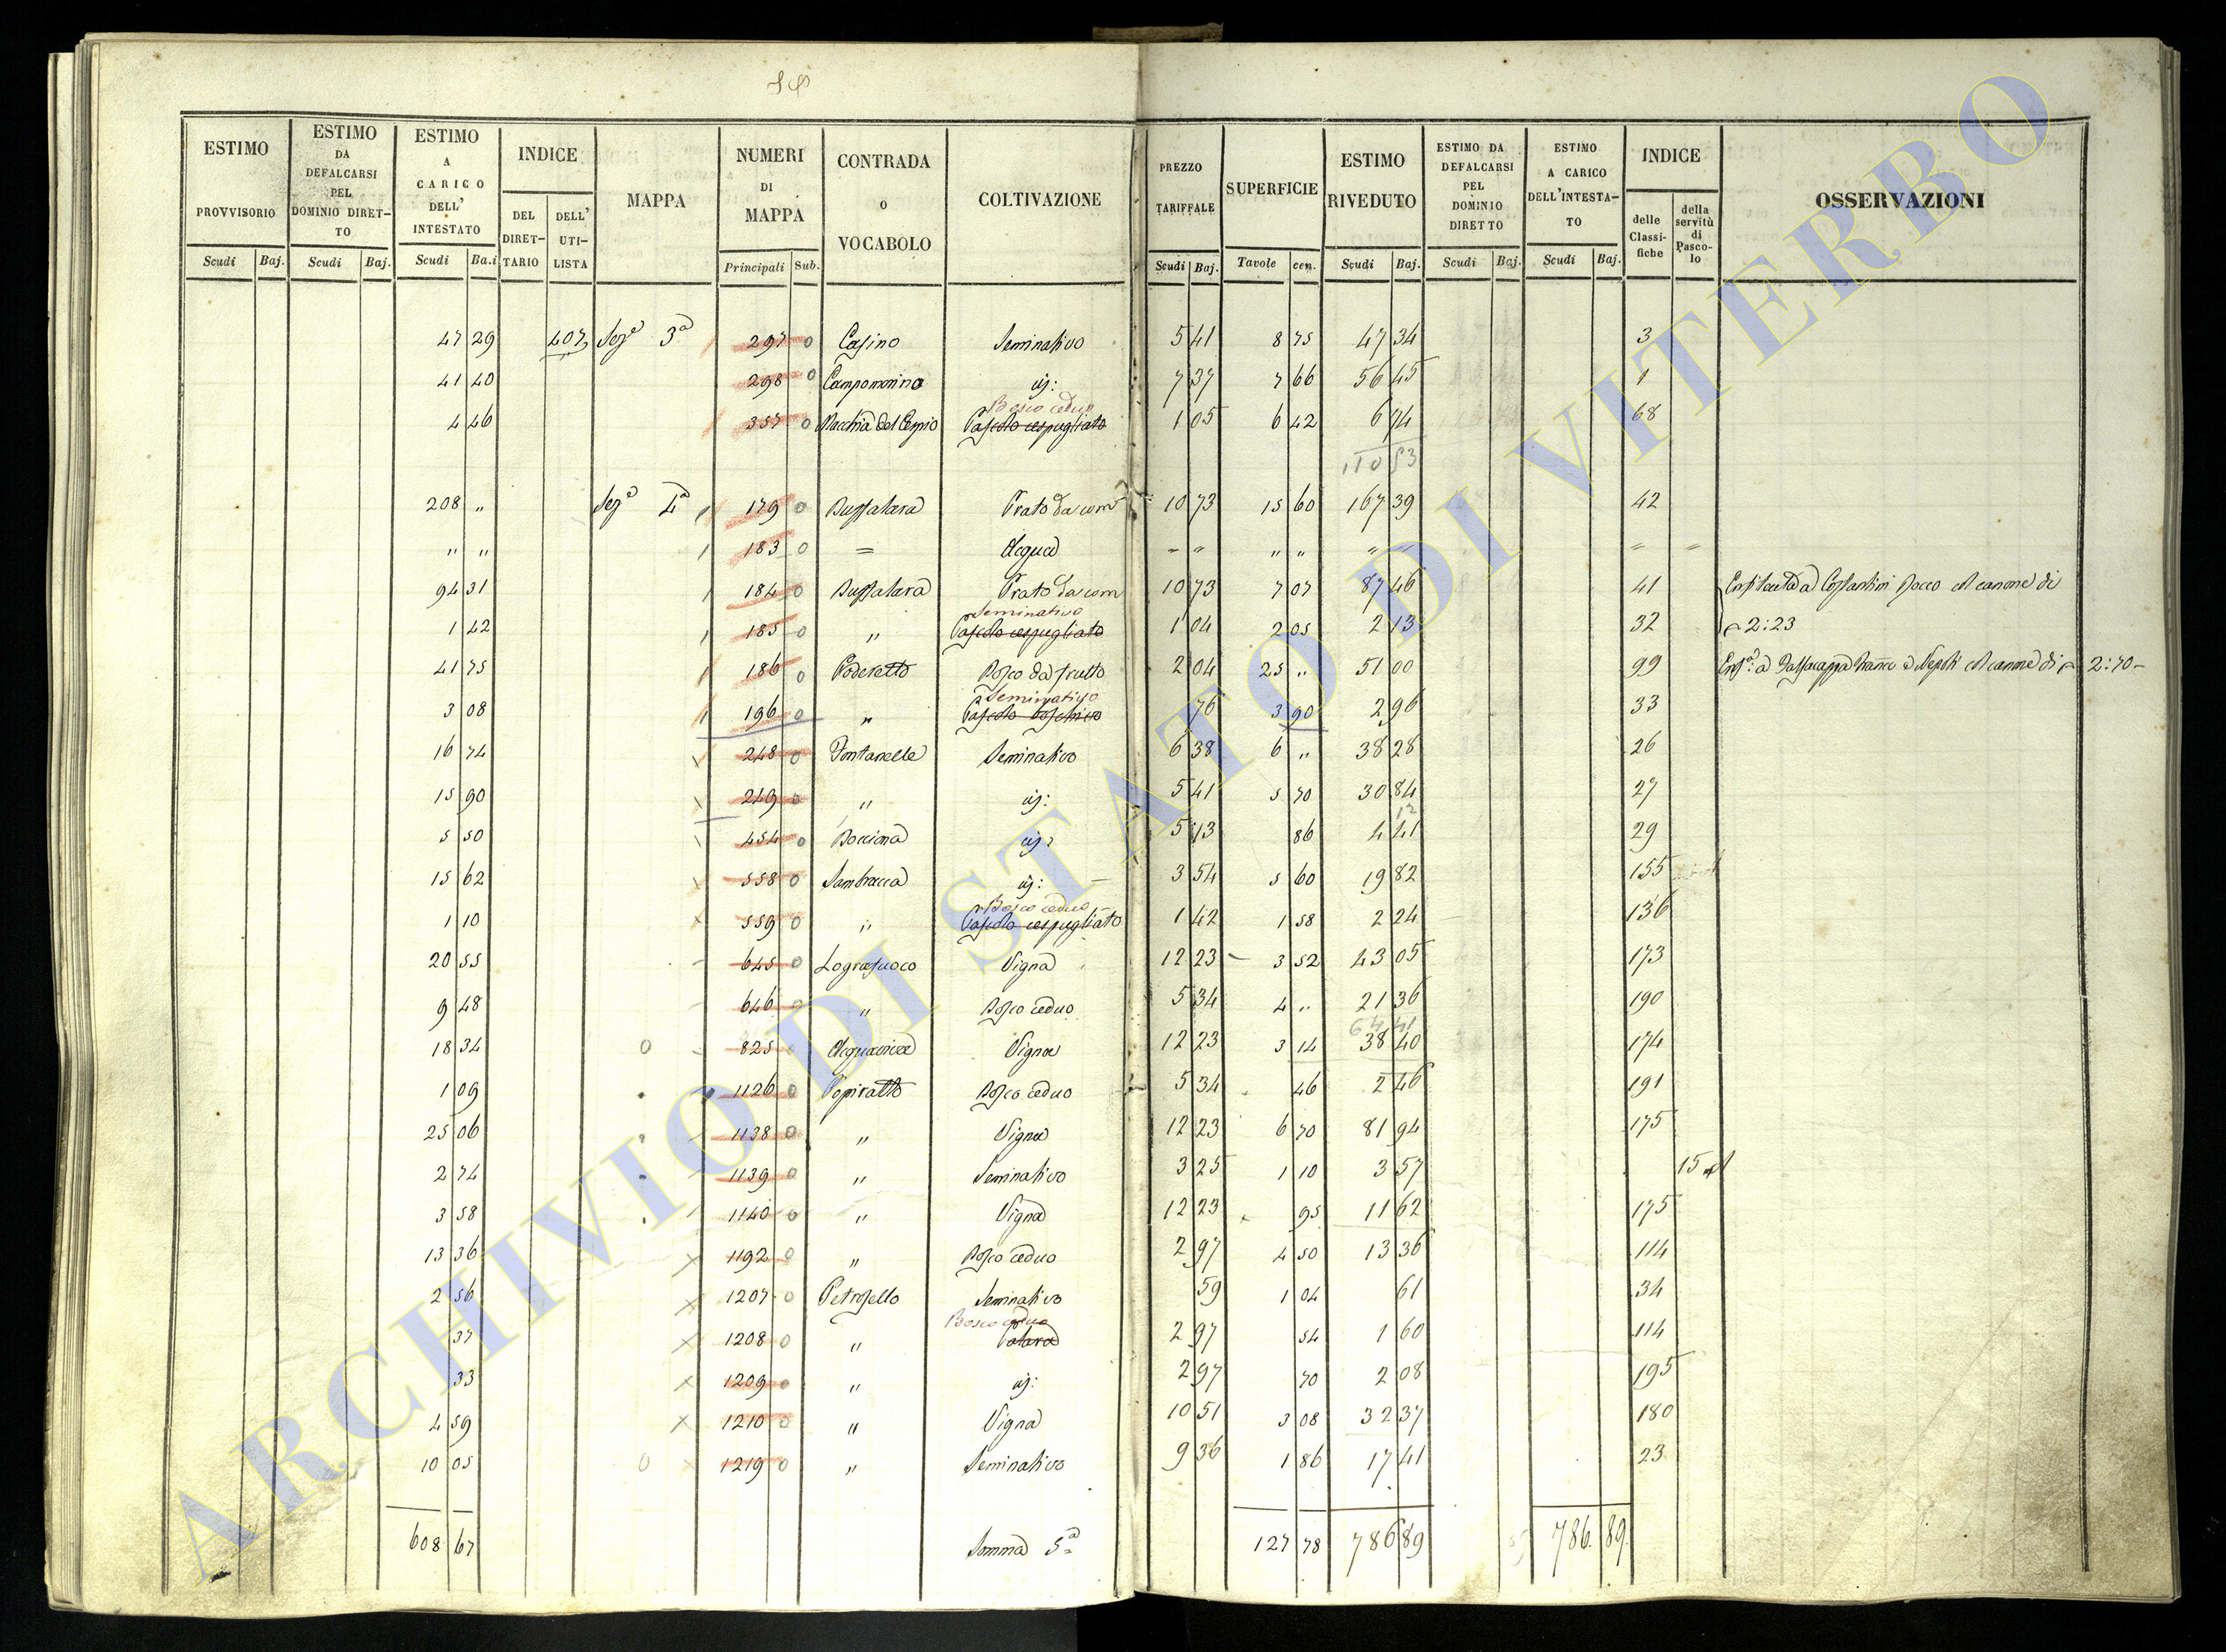 ESTIMO PROVVISORIO
ESTIMO DA DEFALCARSI PEL DOMINIO DIRET-TO
ESTIMO A CARICO DELL' INTESTATO
INDICE
DEL DIRET-TARIO
DELL' UTI-LISTA
MAPPA
NUMERI DI MAPPA
CONTRADA O VOCABOLO
COLTIVAZIONE
PREZZO TARIFFALE
SUPERFICIE
ESTIMO RIVEDUTO
ESTIMO DA DEFALCARSI PEL DOMINIO DIRETTO
ESTIMO A CARICO DELL'INTESTA-TO
INDICE
delle Classi-fiche
della servitù di Pasco-lo
OSSERVAZIONI
Scudi Baj. Scudi Baj. Scudi Ba.i Principali Sub. Scudi Baj. Tavole cen. Scudi Baj. Scudi Baj. Scudi Baj.
47 29 407 Sezᵉ 3ª 297 0 Casino Seminativo 5 41 8 75 47 34 3
41 40 298 0 Campomorino id: 7 37 7 66 56 45 1
Bosco ceduo
4 46 357 0 Macchia del Cerpio Pascolo cespugliato 1 05 6 42 6 74 68
110 53
208 " Sezᵉ 4ª 179 0 Buffalara Prato da com 10 73 15 60 167 39 42
" " 183 0 = Acqua " " " " " "
94 31 184 0 Buffalara Prato da com 10 73 7 07 87 46 41
Seminativo
1 42 185 0 " Pascolo cespugliato 1 04 2 05 2 13 32 2:23
41 75 186 0 Poderetto Bosco da frutto 2 04 25 " 51 00 99 2:70
Seminativo
3 08 196 0 " Pascolo boschivo 76 3 90 2 96 33
16 74 248 0 Fontanelle Seminativo 6 38 6 " 38 28 26
15 90 249 0 " id: 5 41 5 70 30 84 27
5 50 454 0 Boccima id: 5 13 86 4 41 29
15 62 558 0 Sambracca id: 3 54 5 60 19 82 155
Bosco ceduo
1 10 559 0 " Pascolo cespugliato 1 42 1 58 2 24 136
20 55 645 0 Logrosuoco Vigna 12 23 3 52 43 05 173
9 48 646 0 " Bosco ceduo 5 34 4 " 21 36 190
64 41
18 34 825 0 Vigna 12 23 3 14 38 40 174
1 09 1126 0 Popiratto Bosco ceduo 5 34 46 2 46 191
25 06 1138 0 " Vigna 12 23 6 70 81 94 175
2 74 1139 0 " Seminativo 3 25 1 10 3 57 15
3 58 1140 0 " Vigna 12 23 95 11 62 175
13 36 1192 0 " Bosco ceduo 2 97 4 50 13 36 114
2 56 1207 0 Petrosello Seminativo 59 1 04 61 34
Bosco ceduo
37 1208 0 " 2 97 54 1 60 114
33 1209 0 " id: 2 97 70 2 08 195
4 59 1210 0 " Vigna 10 51 3 08 32 37 180
10 05 1219 0 " Seminativo 9 36 1 86 17 41 23
608 67 Somma 5ª 127 78 786 89 786 89
ARCHIVIO DI STATO DI VITERBO